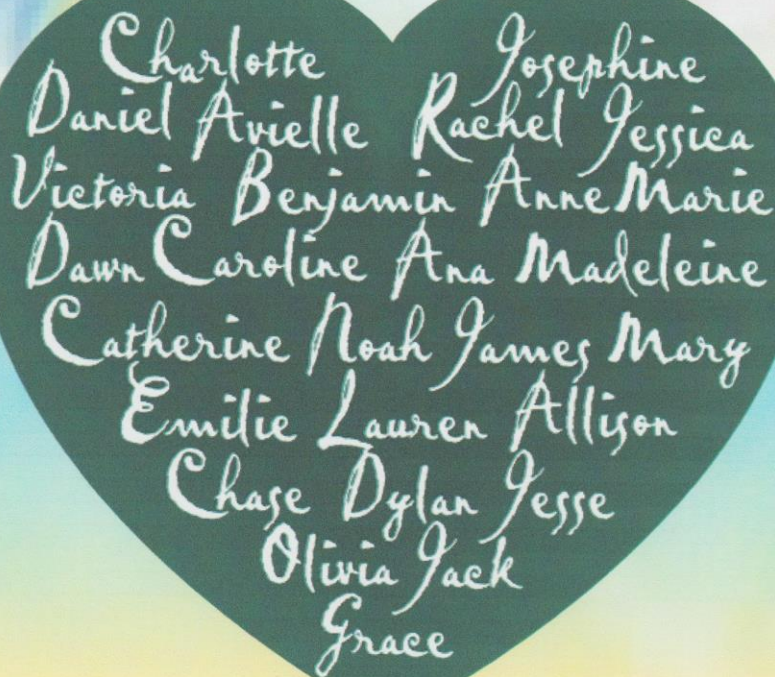 Charlotte Josephine
Daniel Avielle Rachel Jessica
Victoria Benjamin AnneMarie
Dawn Caroline Ana Madeleine
Catherine Noah James Mary
Emilie Lauren Allison
Chase Dylan Jesse
Olivia Jack
Grace